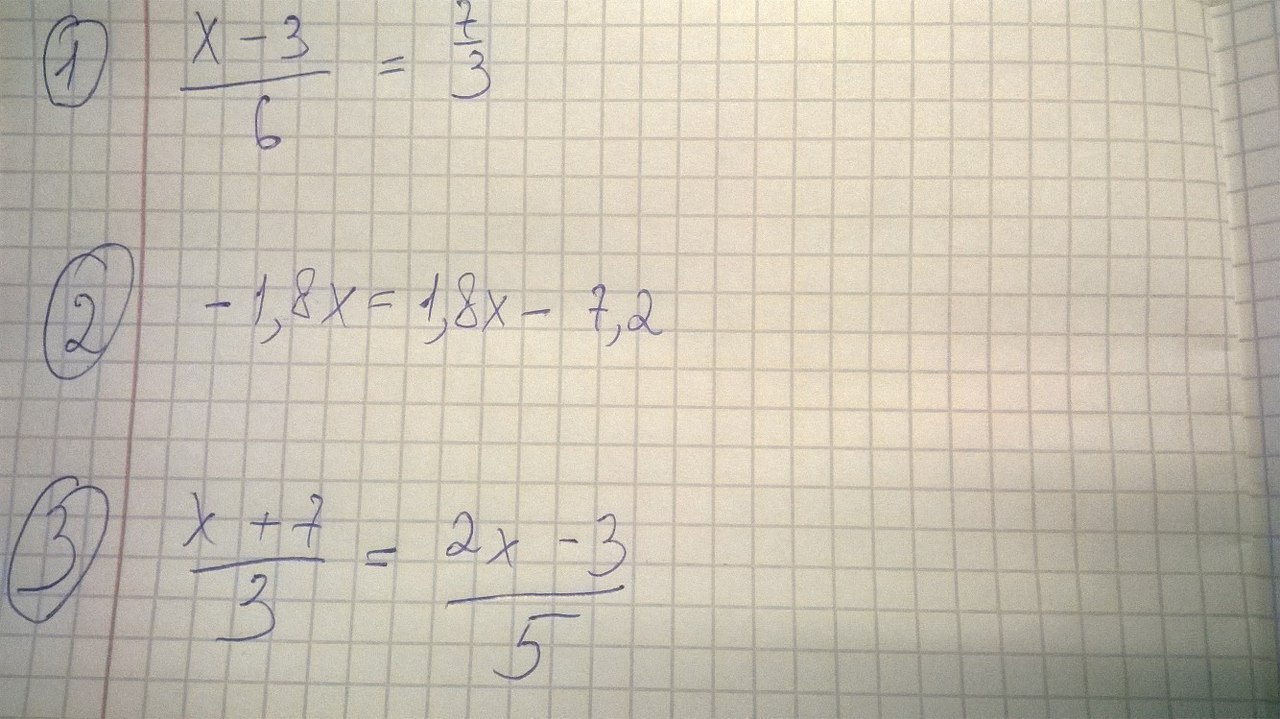 ① (x - 3)/6 = 7/3
② - 1,8x = 1,8x - 7,2
③ (x + 7)/3 = (2x - 3)/5